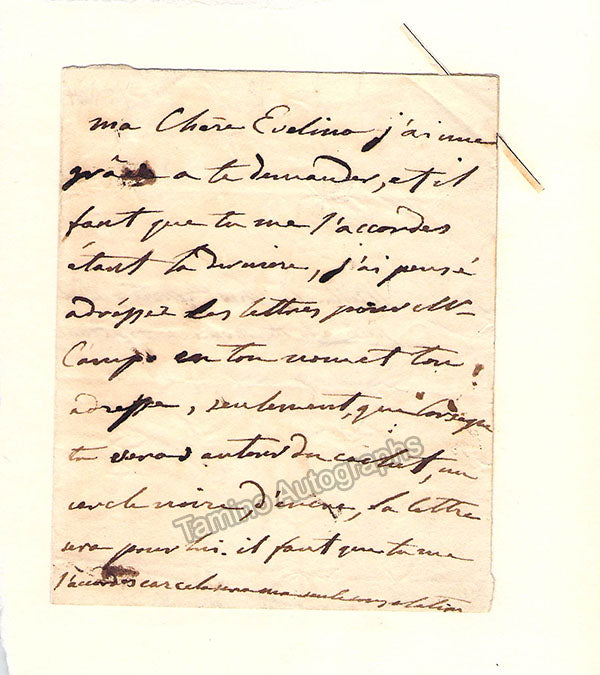 ma Chère Evelina j'ai une
grâce a te demander, et il
faut que tu me l'accordes
étant la derniere, j'ai pensé
adrésser les lettres pour Mr
Campo en ton nom et ton
adresse, seulement, que lorsque
tu verras autour du cachet, un
cercle noire, d'encre, la lettre
sera pour lui. il faut que tu me
l'accordes car cela sera ma seule consolation
Tamino Autographs